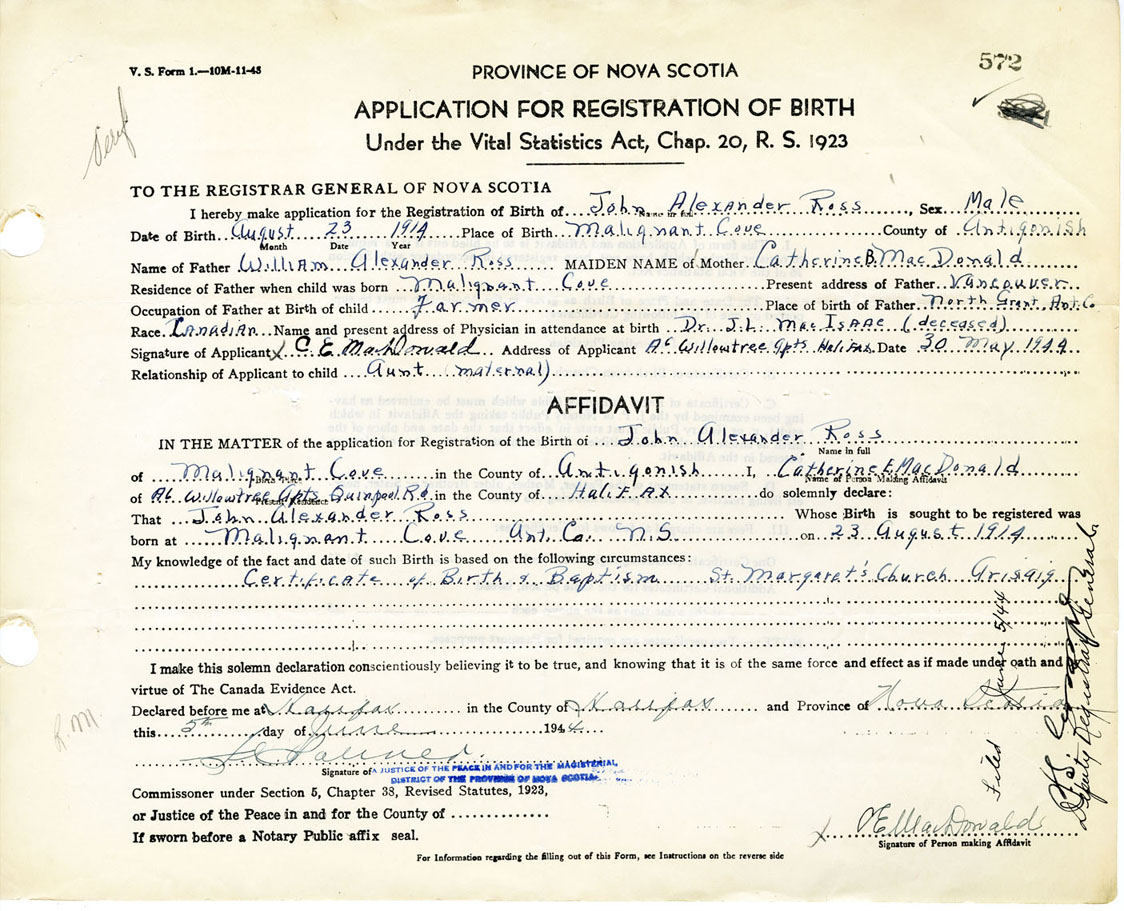 V. S. Form 1.—10M-11-43
PROVINCE OF NOVA SCOTIA
572
APPLICATION FOR REGISTRATION OF BIRTH
Under the Vital Statistics Act, Chap. 20, R. S. 1923
TO THE REGISTRAR GENERAL OF NOVA SCOTIA
I hereby make application for the Registration of Birth of John Alexander Ross, Sex Male
Name in full
Date of Birth August 23 1914 Place of Birth Malignant Cove County of Antigonish
Month Date Year
Name of Father William Alexander Ross MAIDEN NAME of Mother Catherine B. MacDonald
Residence of Father when child was born Malignant Cove Present address of Father Vancouver
Occupation of Father at Birth of child Farmer Place of birth of Father North Grant, Ant. Co
Race Canadian Name and present address of Physician in attendance at birth Dr. J.L. MacIsaac (deceased)
Signature of Applicant X C E MacDonald Address of Applicant A6 Willowtree Apts Halifax Date 30 May 1944
Relationship of Applicant to child Aunt (maternal)
AFFIDAVIT
IN THE MATTER of the application for Registration of the Birth of John Alexander Ross
Name in full
of Malignant Cove in the County of Antigonish I, Catherine E. MacDonald
Birth Place Name of Person Making Affidavit
of A6 Willowtree Apts Quinpool Rd in the County of Halifax do solemnly declare:
Present Residence
That John Alexander Ross Whose Birth is sought to be registered was
born at Malignant Cove Ant. Co. N.S. on 23 August 1914
My knowledge of the fact and date of such Birth is based on the following circumstances:
Certificate of Birth & Baptism St. Margaret's Church Arisaig
I make this solemn declaration conscientiously believing it to be true, and knowing that it is of the same force and effect as if made under oath and by
virtue of The Canada Evidence Act.
Declared before me at Halifax in the County of Halifax and Province of Nova Scotia
this 5th day of June 1944
Signature of A JUSTICE OF THE PEACE IN AND FOR THE MAGISTERIAL
DISTRICT OF THE PROVINCE OF NOVA SCOTIA
Commissoner under Section 5, Chapter 38, Revised Statutes, 1923,
or Justice of the Peace in and for the County of
If sworn before a Notary Public affix seal.
X C E MacDonald
Signature of Person making Affidavit
For Information regarding the filling out of this Form, see Instructions on the reverse side
R.M.
Filed June 5/44
Deputy Registrar General